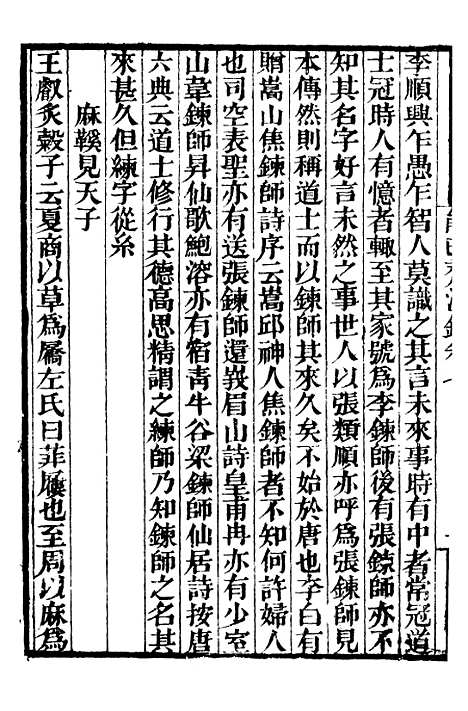 李順興乍愚乍智人莫識之其言未來事時有中者常冠道
士冠時人有憶者輒至其家號為李鍊師後有張鍊師亦不
知其名字好言未然之事世人以張類順亦呼為張鍊師見
本傳然則稱道士而以鍊師其來久矣不始於唐也李白有
贈嵩山焦鍊師詩序云嵩邱神人焦鍊師者不知何許婦人
也司空表聖亦有送張鍊師還峩眉山詩皇甫冉亦有少室
山韋鍊師昇仙歌鮑溶亦有宿青牛谷梁鍊師仙居詩按唐
六典云道士修行其德高思精謂之練師乃知鍊師之名其
來甚久但練字從糸
麻鞵見天子
王叡炙轂子云夏商以草為屩左氏曰菲屨也至周以麻為